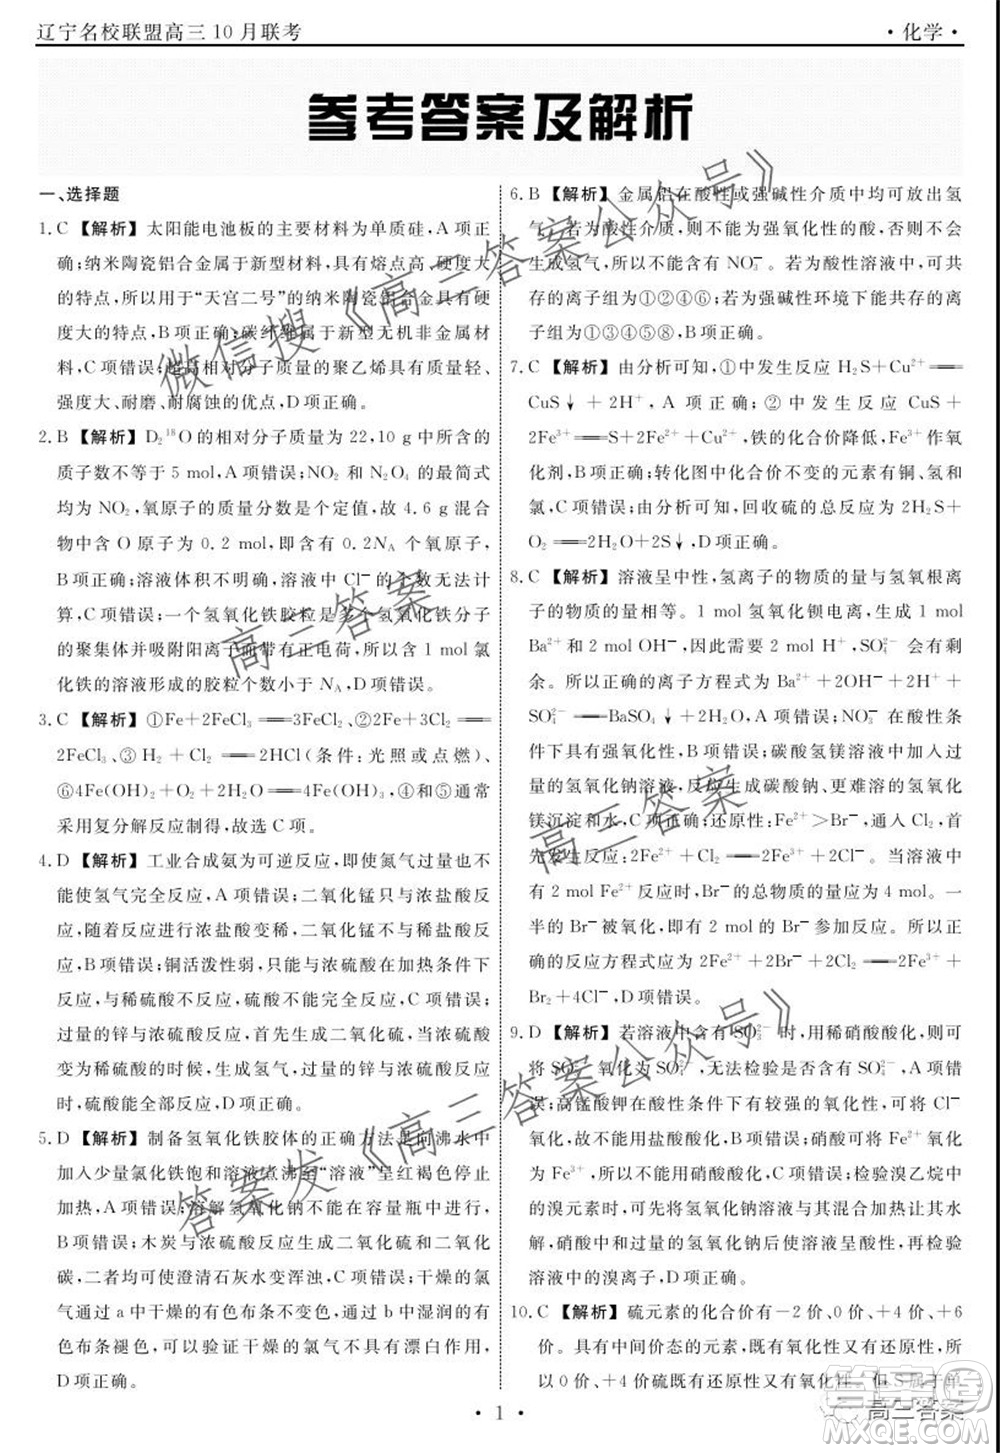 辽宁名校联盟高三10月联考
·化学·
参考答案及解析
一、选择题
1.C 【解析】太阳能电池板的主要材料为单质硅,A项正
确;纳米陶瓷铝合金属于新型材料,具有熔点高、硬度大
的特点,所以用作“天宫二号”的纳米陶瓷铝合金具有硬
度大的特点,B项正确;碳纤维属于新型无机非金属材
料,C项错误;超高相对分子质量的聚乙烯具有质量轻、
强度大、耐磨、耐腐蚀的优点,D项正确。
2.B 【解析】D₂¹⁸O的相对分子质量为22,10 g中所含的
质子数不等于5 mol,A项错误;NO₂和N₂O₄的最简式
均为NO₂,氧原子的质量分数是个定值,故4.6 g混合
物中含O原子为0.2 mol,即含有0.2Nₐ个氧原子,
B项正确;溶液体积不明确,溶液中Cl⁻的个数无法计
算,C项错误;一个氢氧化铁胶粒是多个氢氧化铁分子
的聚集体并吸附阳离子而带有正电荷,所以含1 mol氯
化铁的溶液形成的胶粒个数小于Nₐ,D项错误。
3.C 【解析】①Fe+2FeCl₃══3FeCl₂、②2Fe+3Cl₂══
2FeCl₃、③H₂+Cl₂══2HCl(条件:光照或点燃)、
⑥4Fe(OH)₂+O₂+2H₂O══4Fe(OH)₃,④⑤通常
采用复分解反应制得,故选C项。
4.D 【解析】工业合成氨为可逆反应,即使氮气过量也不
能使氢气完全反应,A项错误;二氧化锰只与浓盐酸反
应,随着反应进行,浓盐酸变稀,二氧化锰不与稀盐酸反
应,B项错误;铜活泼性弱,只能与浓硫酸在加热条件下
反应,与稀硫酸不反应,硫酸不能完全反应,C项错误;
过量的锌与浓硫酸反应,首先生成二氧化硫,随着浓硫酸
变为稀硫酸的时候,生成氢气,但是由于锌是过量
时,硫酸能全部反应,D项正确。
5.D 【解析】制备氢氧化铁胶体的正确方法是向沸水中
加入少量氯化铁饱和溶液煮沸至“溶液”呈红褐色停止
加热,A项错误;溶解氢氧化钠不能在容量瓶中进行,
B项错误;木炭与浓硫酸反应生成二氧化硫和二氧化
碳,二者均可使澄清石灰水变浑浊,C项错误;干燥的氯
气通过a中干燥的有色布条不变色,通过b中湿润的有
色布条褪色,可以验证干燥的氯气不具有漂白性,
D项正确。
6.B 【解析】金属铝在酸性或强碱性介质中均可放出氢
气。若为酸性介质,则不能为强氧化性的酸,否则不会
生成氢气,所以不能有NO₃⁻。若为酸性溶液中,可共
存的离子组为①②④⑥;若为强碱性环境下能共存的离
子组为①③④⑤⑧,B项正确。
7.C 【解析】由分析可知,①中发生反应H₂S+Cu²⁺══
CuS↓+2H⁺,A项正确;②中发生反应CuS+
2Fe³⁺══S+2Fe²⁺+Cu²⁺,铁的化合价降低,Fe³⁺作氧
化剂,B项正确;转化图中化合价不变的元素有铜、氢和
氯,C项错误;由分析可知,回收硫的总反应为2H₂S+
O₂══2H₂O+2S↓,D项正确。
8.C 【解析】溶液呈中性,氢离子的物质的量与氢氧根离
子的物质的量相等。1 mol氢氧化钡电离,生成1 mol
Ba²⁺和2 mol OH⁻,需要2 mol H⁺,SO₄²⁻会有剩
余。所以正确的离子方程式为Ba²⁺+2OH⁻+2H⁺+
SO₄²⁻══BaSO₄↓+2H₂O,A项错误;NO₃⁻在酸性条
件下具有强氧化性,B项错误;碳酸氢镁溶液中加入过
量的氢氧化钠溶液,反应生成碳酸钠、更难溶的氢氧化
镁沉淀和水,C项正确;还原性:Fe²⁺>Br⁻,通入Cl₂,首
先发生反应2Fe²⁺+Cl₂══2Fe³⁺+2Cl⁻。当溶液中
有2 mol Fe²⁺时,Br⁻的总物质的量应为4 mol。一
半的Br⁻被氧化,即有2 mol的Br⁻与Cl₂反应,正确
的反应方程式应为2Fe²⁺+2Br⁻+2Cl₂══2Fe³⁺+
Br₂+4Cl⁻,D项错误。
9.D 【解析】若溶液中含有SO₃²⁻时,用稀硝酸酸化,则可
将SO₃²⁻氧化为SO₄²⁻,无法证明是否含有SO₄²⁻,A项错
误;高锰酸钾在酸性条件下有较强的氧化性,可将Cl⁻
氧化,所以不能用盐酸酸化,B项错误;硝酸可将Fe²⁺氧化为
Fe³⁺,所以不能用硝酸酸化,C项错误;检验溴乙烷中
的溴元素时,可先将氢氧化钠溶液与其混合加热,再加入稀
硝酸中和过量的氢氧化钠使溶液呈酸性,再检验
溶液中的溴离子,D项正确。
10.C 【解析】硫元素的化合价有-2价、0价、+4价、+6
价。具有中间价态的元素既有氧化性又有还原性,所
以0价、+4价硫既有氧化性又有还原性,但S属于单
·1·
微信搜《高三答案公众号》
高三答案
高三答案
答案发《高三答案公众号》
高三答案
答案圈
MXQE.COM